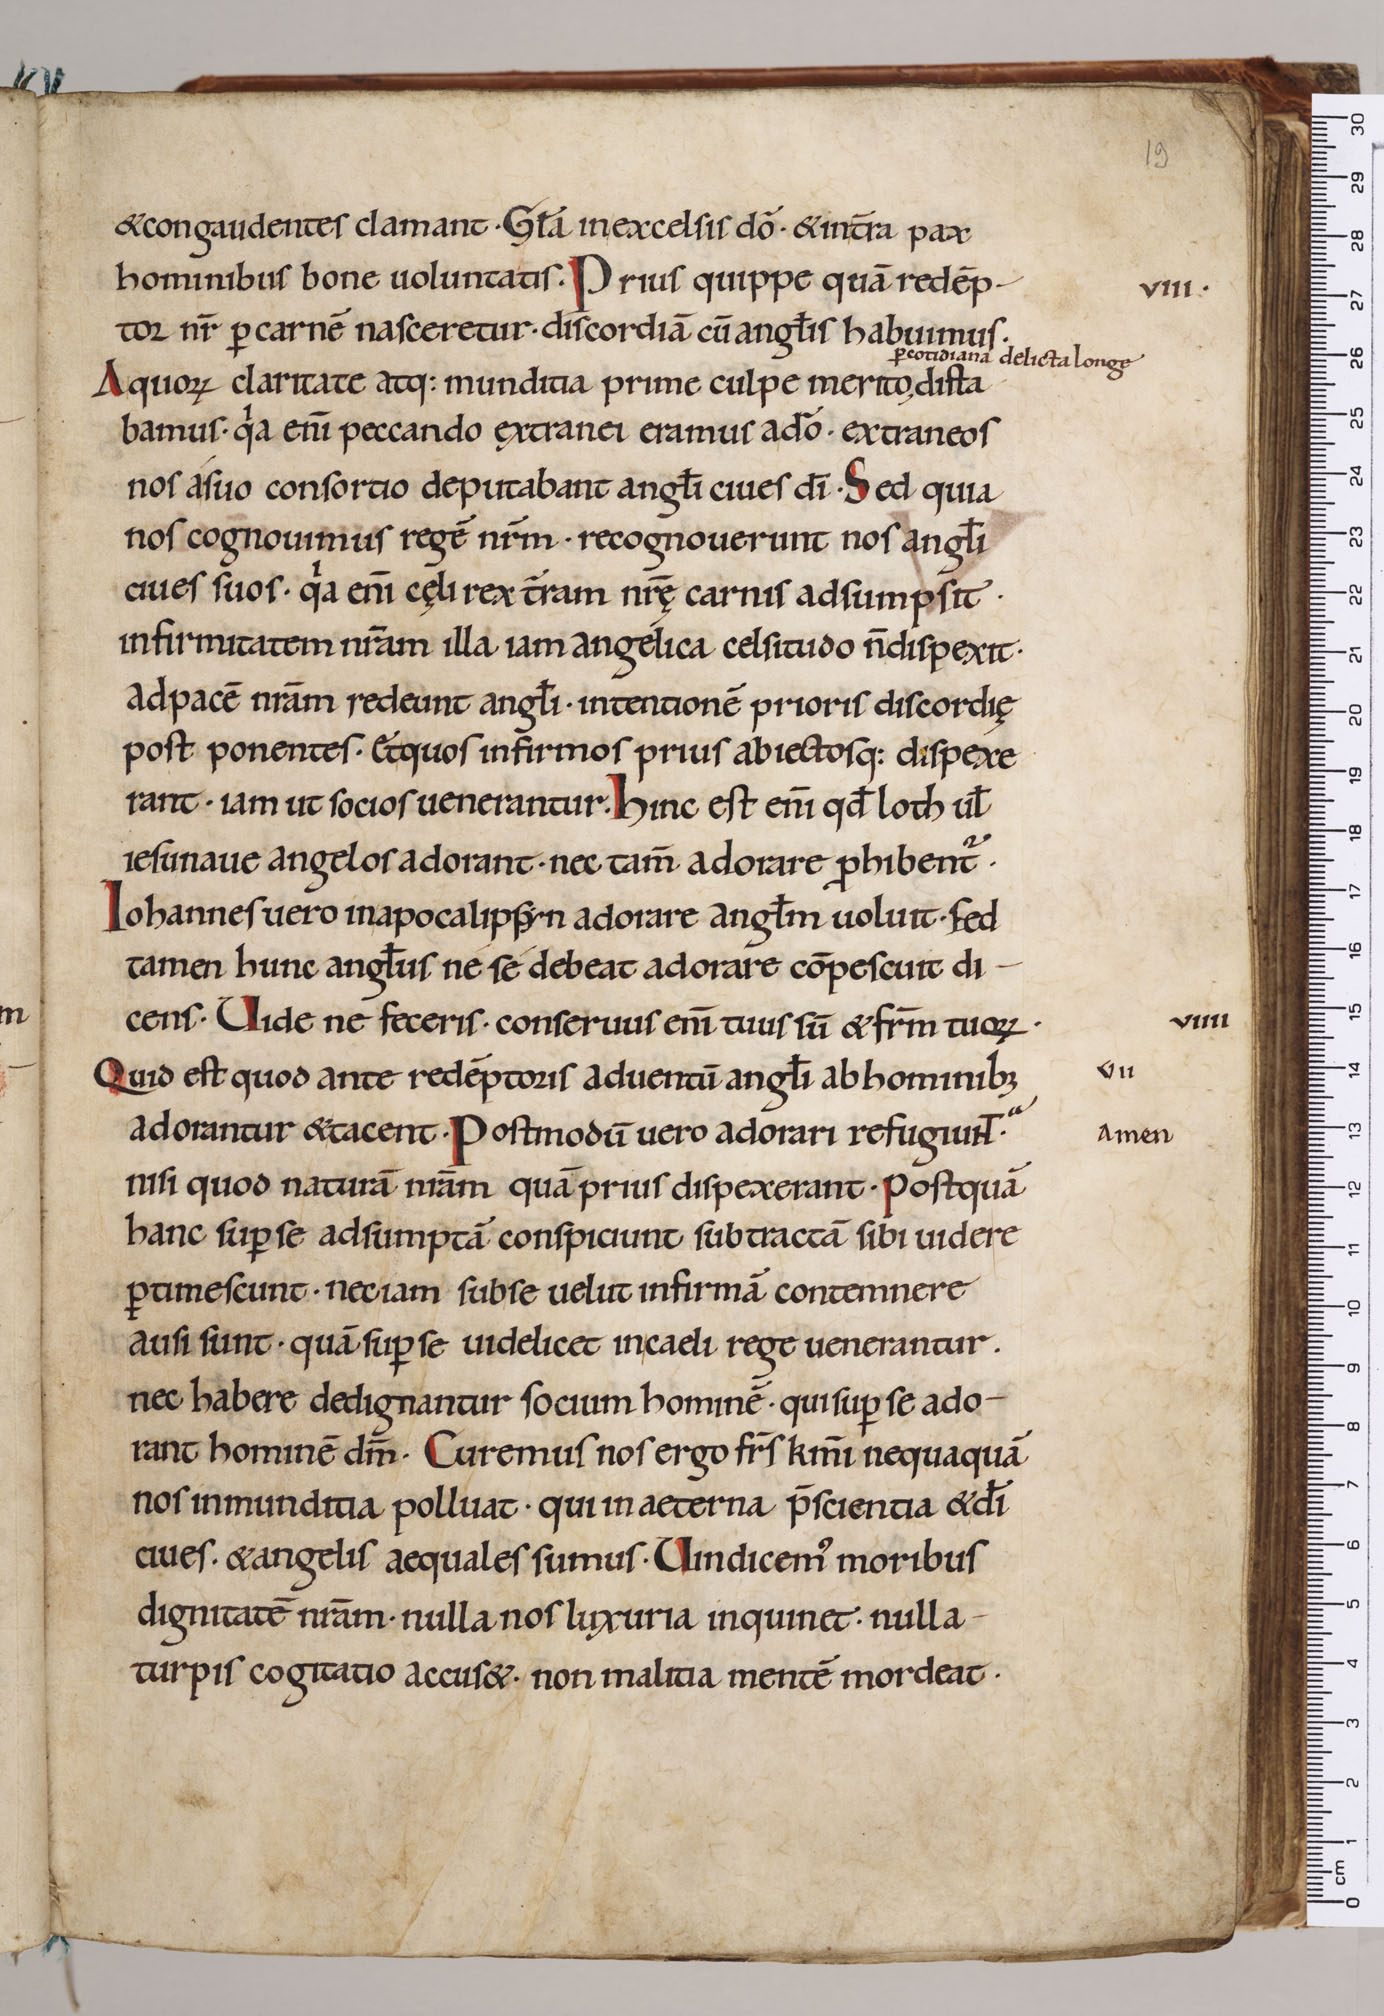 19
&congaudentes clamant · Głã inexcelsis dõ · &int̃ra pax
hominibus bone uoluntatis. Prius quippe quã redẽp-
viii·
tor nr̃ ꝑ carnẽ nasceretur · discordiã cũ angłis habuimus.
ꝑ cotidiana delicta longe
Aquoꝝ claritate atq: munditia prime culpe merito, dista
bamus · qͥa enĩ peccando ęxtranei eramus adõ · extraneos
nos asuo consortio deputabant angłi ciues dĩ · Sed quia
nos cognouimus regẽ nr̃m · recognouerunt nos angłi
ciues suos · qͥa enĩ cęli rex t̃ram nr̃ę carnis adsumpsit ·
infirmitatem nr̃am illa iam angelica celsitudo ñ dispexit ·
ad pacẽ nr̃am redeunt angłi · intentionẽ prioris discordię
post ponentes · Et quos infirmos prius abiectosq: dispexe
rant · iam ut socios uenerantur. hinc est enĩ qđ loth uł
iesunaue angelos adorant · nec tam̃ adorare ꝓhibent᷑ ·
Iohannes uero inapocalipsyn adorare angłm uoluit · sed
tamen hunc angłus ne se debeat adorare cõpescuit di-
cens · Uide ne feceris · conseruus enĩ tuus sũ & fr̃m tuoꝝ ·
viiii
Quid est quod ante redẽptoris aduentũ angłi ab hominibꝫ
vii
adorantur & tacent · Postmodũ uero adorari refugiuñt ·
Amen
nisi quod naturã nr̃am quã prius dispexerant · postquã
hanc suꝑ se adsumptã conspiciunt subtractã sibi uidere
ꝑtimescunt · nec iam sub se uelut infirmã contemnere
ausi sunt · quã suꝑ se uidelicet in caeli rege uenerantur.
nec habere dedignantur socium hominẽ · qui suꝑ se ado-
rant hominẽ dm̃ · Curemus nos ergo fr̃s km̃i nequaquã
nos inmunditia polluat · qui in aeterna p̃scientia & dĩ
ciues · & angelis aequales sumus · Uindicemꝰ moribus
dignitatẽ nr̃am · nulla nos luxuria inquinet · nulla-
turpis cogitatio accus& · non malitia mentẽ mordeat ·